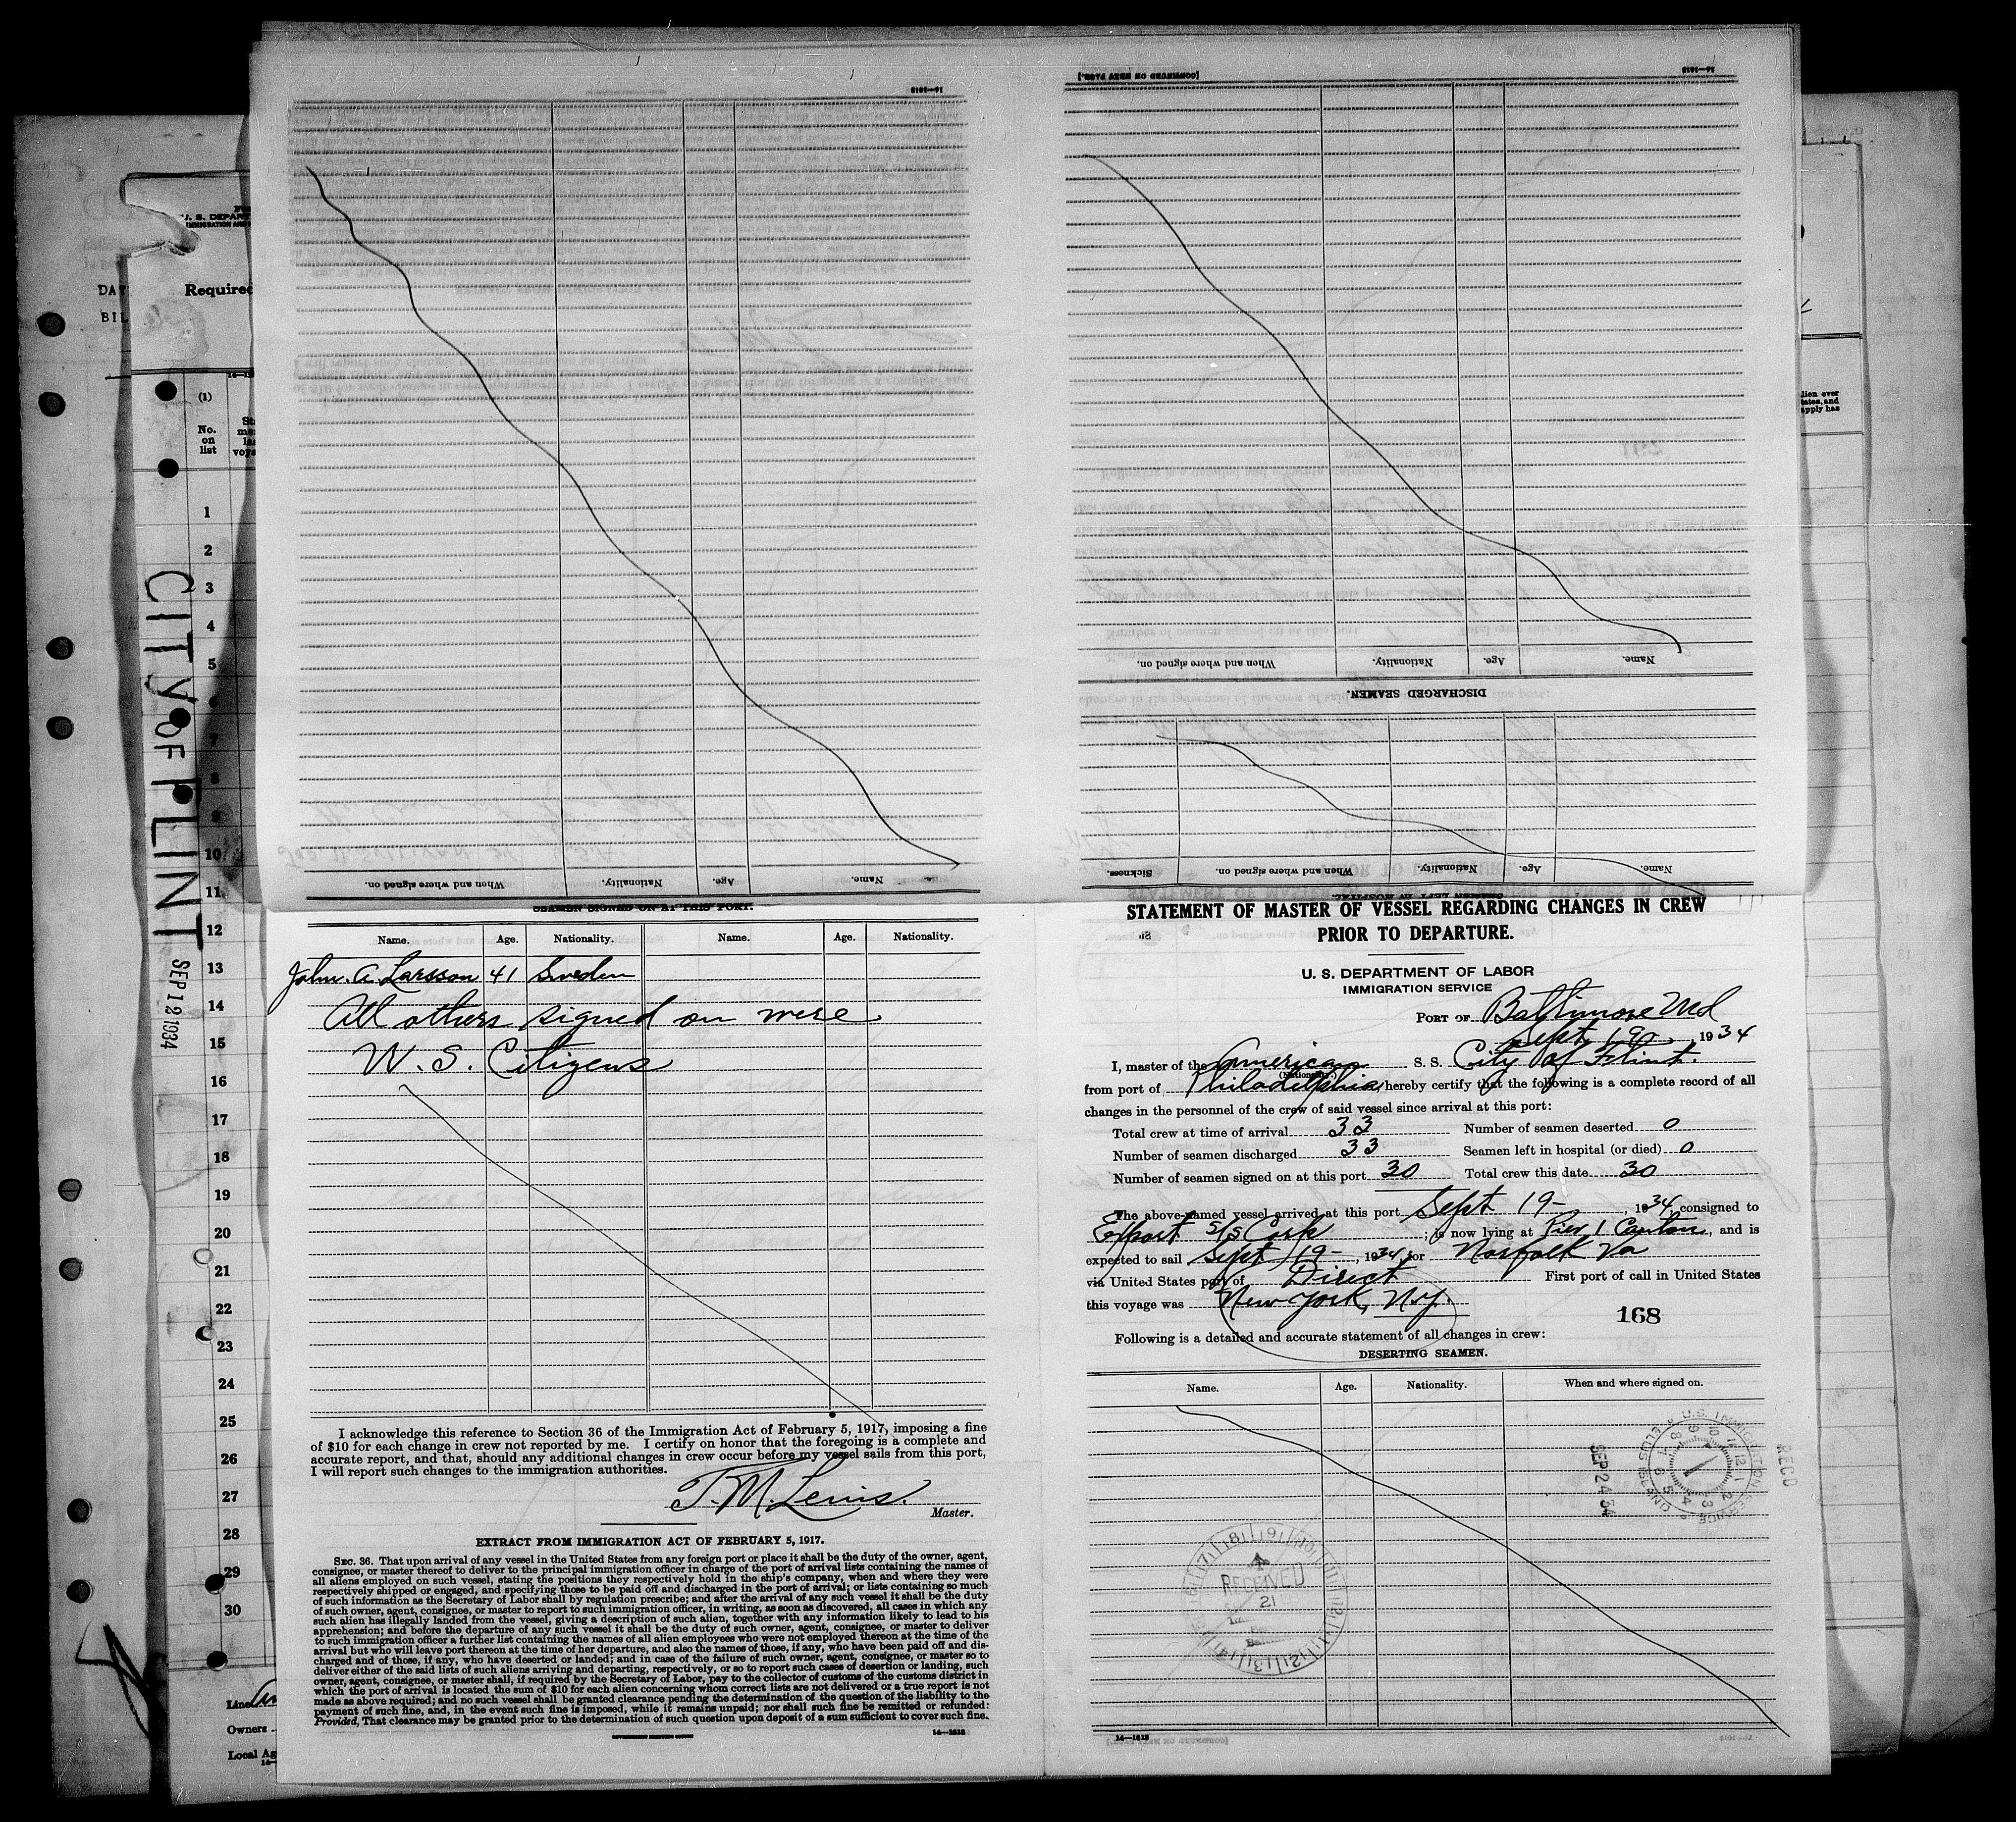 CITY OF FLINT
SEP 12 1934
U. S. DEPAR
IMMIGRATION AND
DAT
BIL
Required
(1)
No.
on
list
1
2
3
4
5
6
7
8
9
10
11
12
13
14
15
16
17
18
19
20
21
22
23
24
25
26
27
28
29
30
Line
Owners
Local Ag
lien over
tates, and
apply has
14—1618
When and where signed on.
Nationality.
Age.
Name.
[CONTINUED ON NEXT PAGE.]
14—1618
When and where signed on.
Nationality.
Age.
Name.
DISCHARGED SEAMEN.
Sickness.
When and where signed on.
Nationality.
Age.
Name.
SEAMEN LEFT IN HOSPITAL.
SEAMEN SIGNED ON AT THIS PORT.
Name. Age. Nationality. Name. Age. Nationality.
John. A Larsson 41 Sweden
All others signed on were
U. S. Citizens
I acknowledge this reference to Section 36 of the Immigration Act of February 5, 1917, imposing a fine
of $10 for each change in crew not reported by me. I certify on honor that the foregoing is a complete and
accurate report, and that, should any additional changes in crew occur before my vessel sails from this port,
I will report such changes to the immigration authorities.
T. M. Lewis.
Master.
EXTRACT FROM IMMIGRATION ACT OF FEBRUARY 5, 1917.
SEC. 36. That upon arrival of any vessel in the United States from any foreign port or place it shall be the duty of the owner, agent,
consignee, or master thereof to deliver to the principal immigration officer in charge of the port of arrival lists containing the names of
all aliens employed on such vessel, stating the positions they respectively hold in the ship's company, when and where they were
respectively shipped or engaged, and specifying those to be paid off and discharged in the port of arrival; or lists containing so much
of such information as the Secretary of Labor shall by regulation prescribe; and after the arrival of any such vessel it shall be the duty
of such owner, agent, consignee, or master to report to such immigration officer, in writing, as soon as discovered, all cases in which any
such alien has illegally landed from the vessel, giving a description of such alien, together with any information likely to lead to his
apprehension; and before the departure of any such vessel it shall be the duty of such owner, agent, consignee, or master to deliver
to such immigration officer a further list containing the names of all alien employees who were not employed thereon at the time of the
arrival but who will leave port thereon at the time of her departure, and also the names of those, if any, who have been paid off and dis-
charged and of those, if any, who have deserted or landed; and in case of the failure of such owner, agent, consignee, or master so to
deliver either of the said lists of such aliens arriving and departing, respectively, or so to report such cases of desertion or landing, such
owner, agent, consignee, or master shall, if required by the Secretary of Labor, pay to the collector of customs of the customs district in
which the port of arrival is located the sum of $10 for each alien concerning whom correct lists are not delivered or a true report is not
made as above required; and no such vessel shall be granted clearance pending the determination of the question of the liability to the
payment of such fine, and, in the event such fine is imposed, while it remains unpaid; nor shall such fine be remitted or refunded:
Provided, That clearance may be granted prior to the determination of such question upon deposit of a sum sufficient to cover such fine.
14—1618
STATEMENT OF MASTER OF VESSEL REGARDING CHANGES IN CREW
PRIOR TO DEPARTURE.
U. S. DEPARTMENT OF LABOR
IMMIGRATION SERVICE
PORT OF Baltimore Md
Sept 19, 1934
I, master of the American S. S. City of Flint.
(Nationality.)
from port of Philadelphia, hereby certify that the following is a complete record of all
changes in the personnel of the crew of said vessel since arrival at this port:
Total crew at time of arrival 33 Number of seamen deserted 0
Number of seamen discharged 33 Seamen left in hospital (or died) 0
Number of seamen signed on at this port 30 Total crew this date 30
The above-named vessel arrived at this port Sept 19-, 1934, consigned to
Export S/S Corp; is now lying at Pier 1 Canton, and is
expected to sail Sept 19-, 1934, for Norfolk Va
via United States port of Direct First port of call in United States
this voyage was New York, N.Y.
168
Following is a detailed and accurate statement of all changes in crew:
DESERTING SEAMEN.
Name. Age. Nationality. When and where signed on.
U.S. IMMIGRATION SERVICE
ELLIS ISLAND
RECD
SEP 24 34
RECEIVED
21
14—1618
[CONTINUED ON NEXT PAGE.]